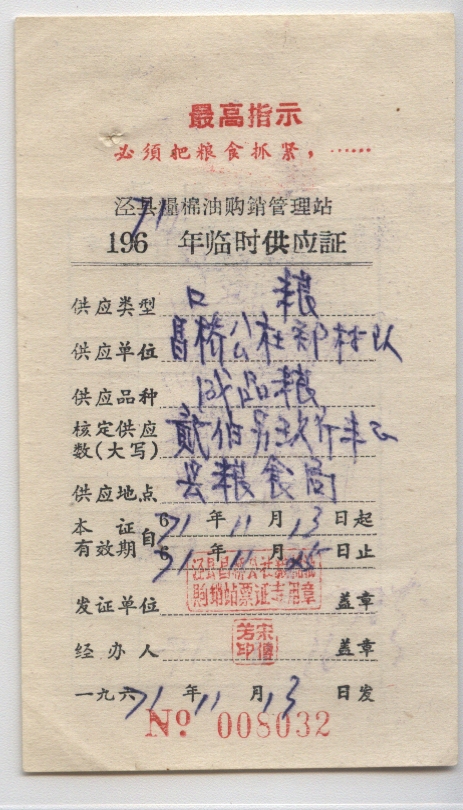 最高指示
必须把粮食抓紧，……
泾县糧棉油购銷管理站
196 71 年临时供应証
供应类型 口 粮
供应单位 昌桥公社郭村队
供应品种 成品粮
核定供应
数(大写) 贰伯另玖斤
供应地点 县粮食局
本 证 自 71 年 11 月 13 日起
有效期 71 年 11 月 25 日止
泾县昌桥公社
购销站票证专用章
发证单位 盖章
宋僖芳印
经办人 盖章
一九六71 年 11 月 13 日发
Nº 008032